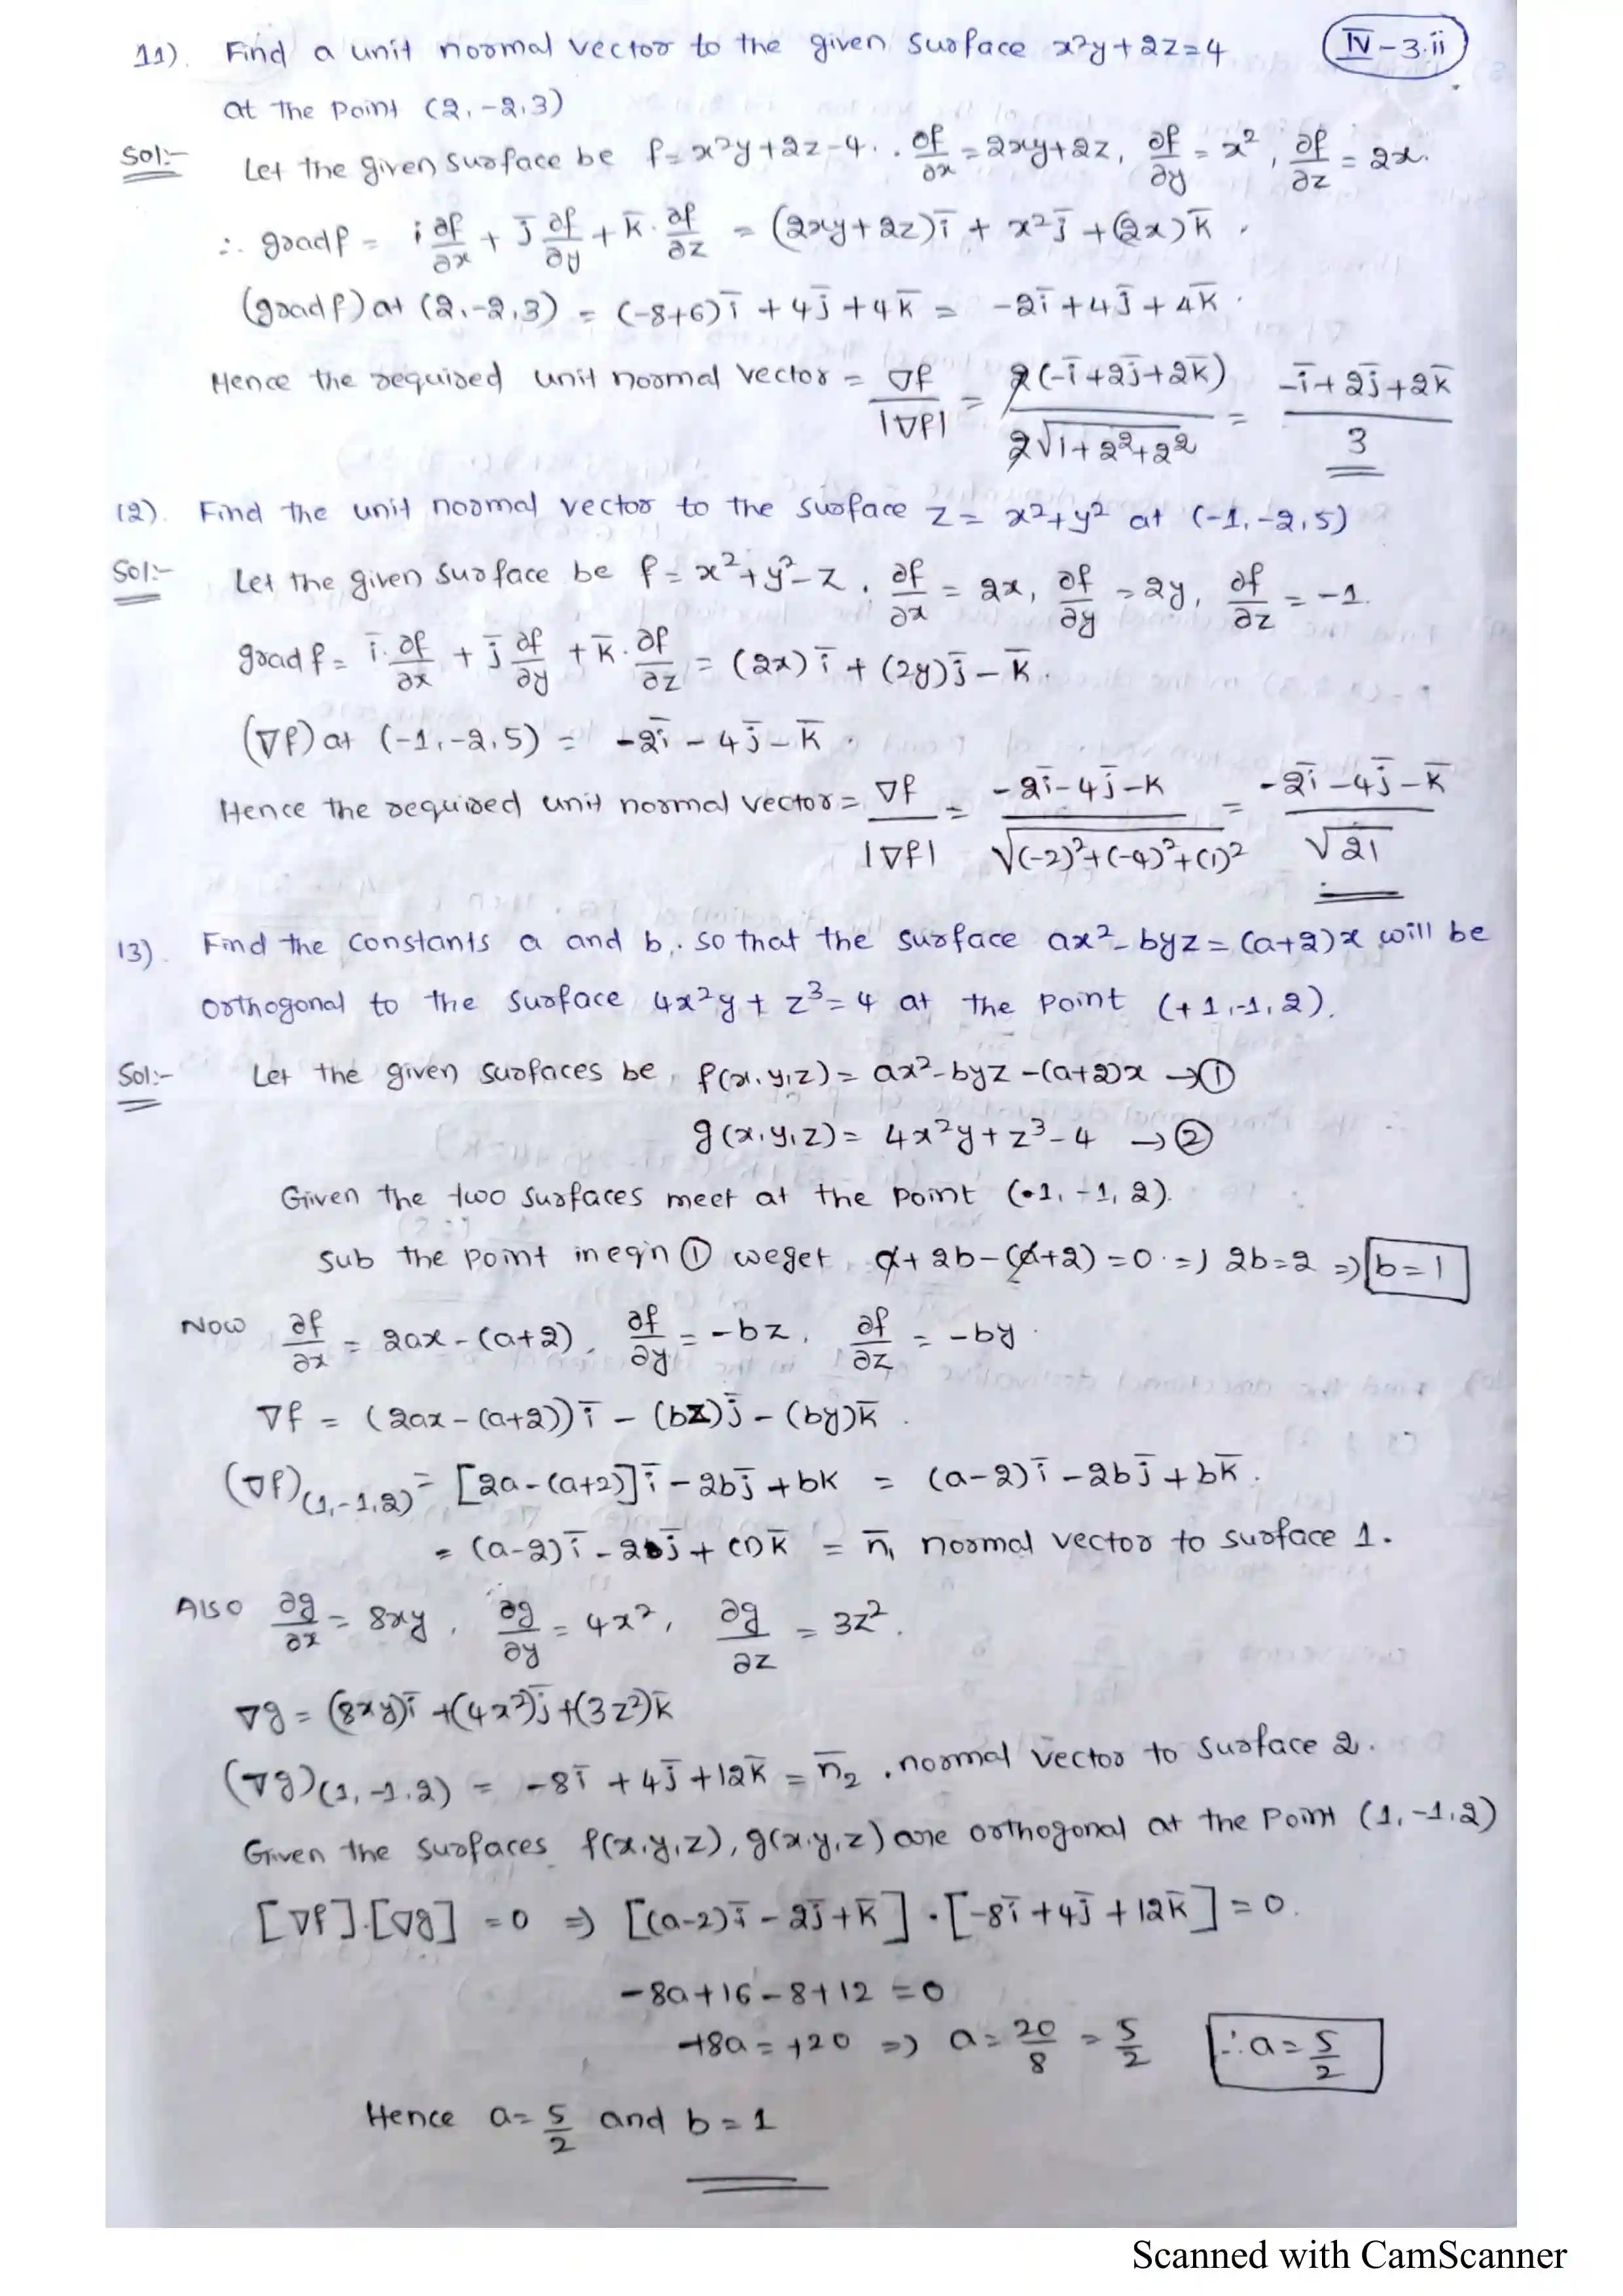 11). Find a unit normal vector to the given surface x²y+2z=4 IV-3.ii
at the point (2,-2,3)
Sol:- Let the given surface be f=x²y+2z-4. ∂f/∂x = 2xy+2z, ∂f/∂y = x², ∂f/∂z = 2x.
∴ grad f = i ∂f/∂x + j̄ ∂f/∂y + k̄.∂f/∂z = (2xy+2z)ī + x²j̄ + (2x)k̄.
(grad f) at (2,-2,3) = (-8+6)ī + 4j̄ + 4k̄ = -2ī+4j̄+4k̄.
Hence the required unit normal vector = ∇f/|∇f| = 2(-ī+2j̄+2k̄)/2√1+2²+2² = -ī+2j̄+2k̄/3
12). Find the unit normal vector to the surface z = x²+y² at (-1,-2,5)
Sol:- Let the given surface be f=x²+y²-z. ∂f/∂x = 2x, ∂f/∂y = 2y, ∂f/∂z = -1.
grad f = ī.∂f/∂x + j̄ ∂f/∂y + k̄.∂f/∂z = (2x)ī + (2y)j̄ - k̄.
(∇f) at (-1,-2,5) = -2ī - 4j̄ - k̄.
Hence the required unit normal vector = ∇f/|∇f| = -2ī-4j̄-k/√(-2)²+(-4)²+(1)² = -2ī-4j̄-k̄/√21
13). Find the constants a and b, so that the surface ax²-byz=(a+2)x will be
orthogonal to the surface 4x²y+z³=4 at the point (+1,-1,2).
Sol:- Let the given surfaces be f(x,y,z) = ax²-byz-(a+2)x →①
g(x,y,z) = 4x²y+z³-4 →②
Given the two surfaces meet at the point (1,-1,2).
sub the point in eqn ① we get a+2b-(a+2)=0 ⇒ 2b=2 ⇒ b=1
Now ∂f/∂x = 2ax-(a+2), ∂f/∂y = -bz, ∂f/∂z = -by.
∇f = (2ax-(a+2))ī - (bz)j̄ - (by)k̄.
(∇f)(1,-1,2) = [2a-(a+2)]ī - 2bj̄ + bk = (a-2)ī - 2bj̄ + bk̄.
= (a-2)ī - 2j̄ + (1)k̄ = n̄₁ normal vector to surface 1.
Also ∂g/∂x = 8xy, ∂g/∂y = 4x², ∂g/∂z = 3z².
∇g = (8xy)ī +(4x²)j̄+(3z²)k̄
(∇g)(1,-1,2) = -8ī + 4j̄ + 12k̄ = n̄₂. normal vector to surface 2.
Given the surfaces f(x,y,z), g(x,y,z) are orthogonal at the point (1,-1,2)
[∇f].[∇g] = 0 ⇒ [(a-2)ī - 2j̄ + k̄].[-8ī + 4j̄ + 12k̄] = 0.
-8a+16-8+12 = 0
+8a = +20 ⇒ a = 20/8 = 5/2 ∴ a = 5/2
Hence a = 5/2 and b = 1
Scanned with CamScanner